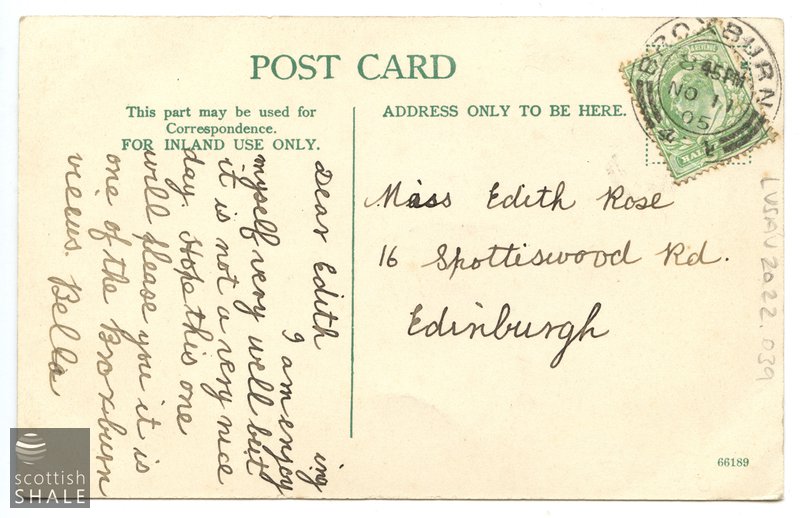 POST CARD
This part may be used for
Correspondence.
FOR INLAND USE ONLY.
ADDRESS ONLY TO BE HERE.
BROXBURN
45PM
NO 11
05
Dear Edith
I am enjoy
ing
myself very well but
it is not a very nice
day. Hope this one
will please you it is
one of the Broxburn
views. Bella
Miss Edith Rose
16 Spottiswood Rd.
Edinburgh
LVSAV2022.039
66189
scottish
SHALE